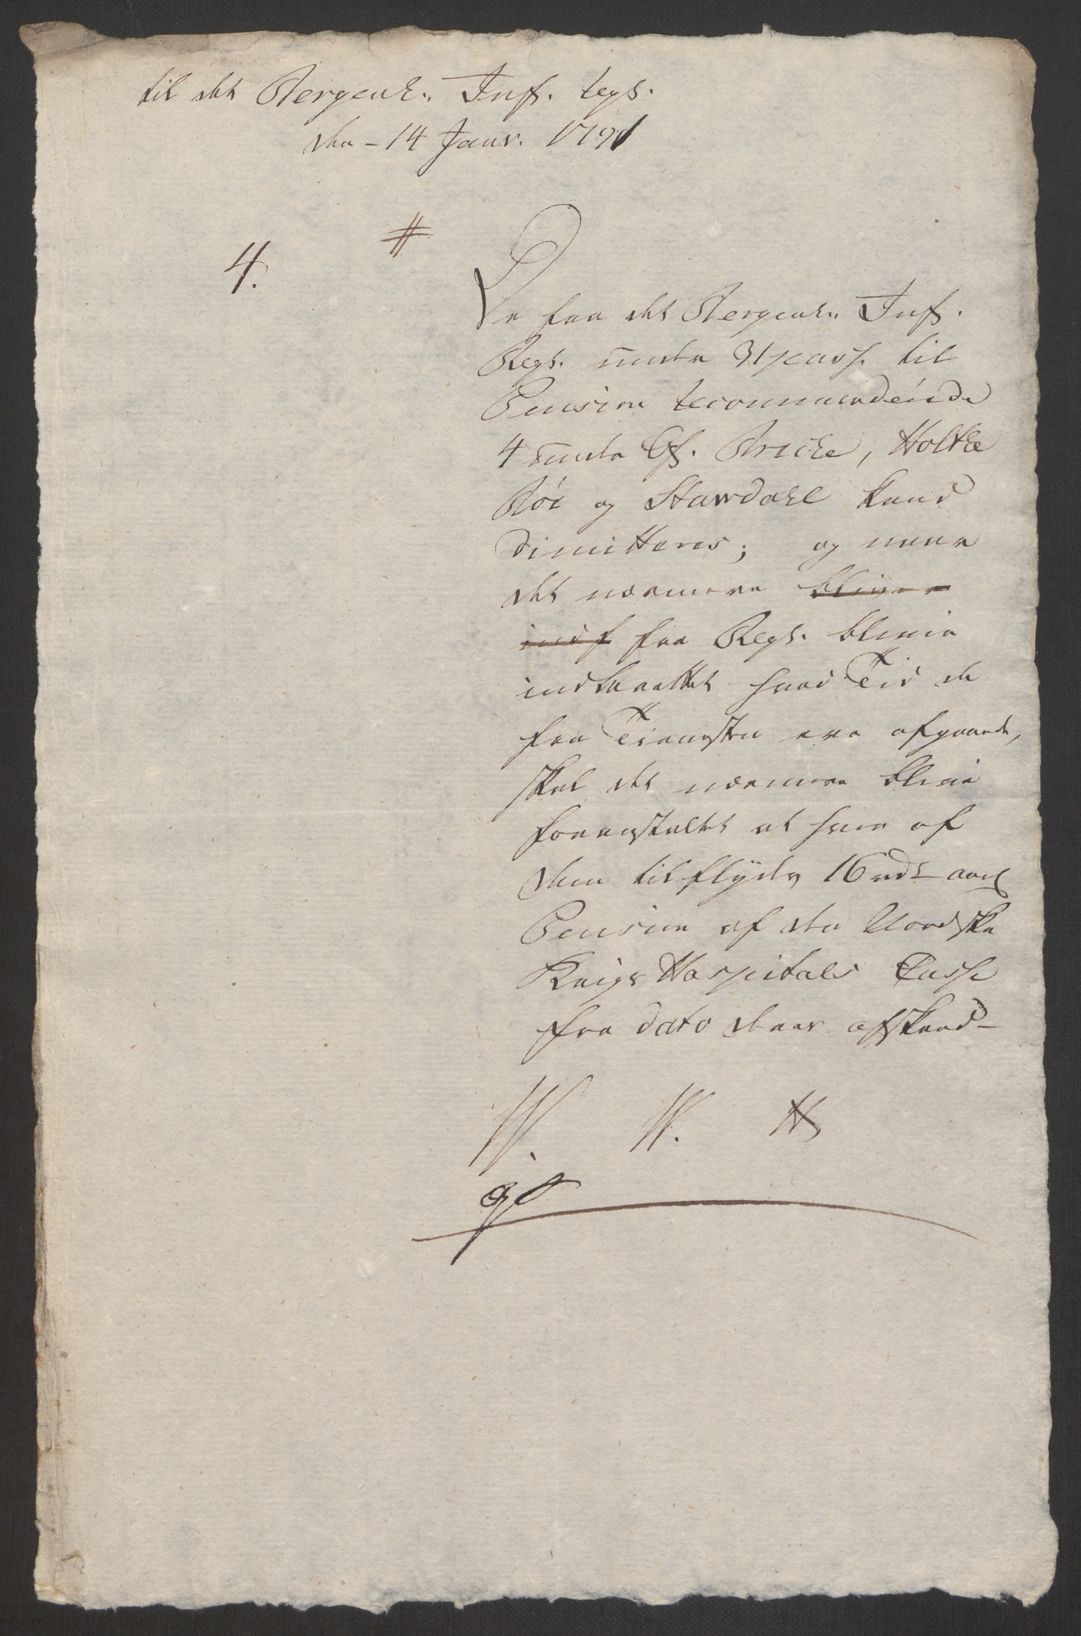 til det Bergenh. Inf. Regt.
den - 14 Janv. 1791
#
4.
De fra det Bergenh. Inf.
Regt. under til
Pension recommenderede
4 under Of. Bricke, Holtke
Böe og Stavdahl kand
dimitteres; og naar
det nærmere bliver
ind fra Regt. bliver
indberettet hvad Tid de
fra Tienesten ere afgaaende,
skal det nærmere blive
foranstaltet at hver af
dem tilflyder 16 rdr aarl
Pension af den Nordske
Krigs Hospitals Casse
fra dato deres afskeed -
W. W. H